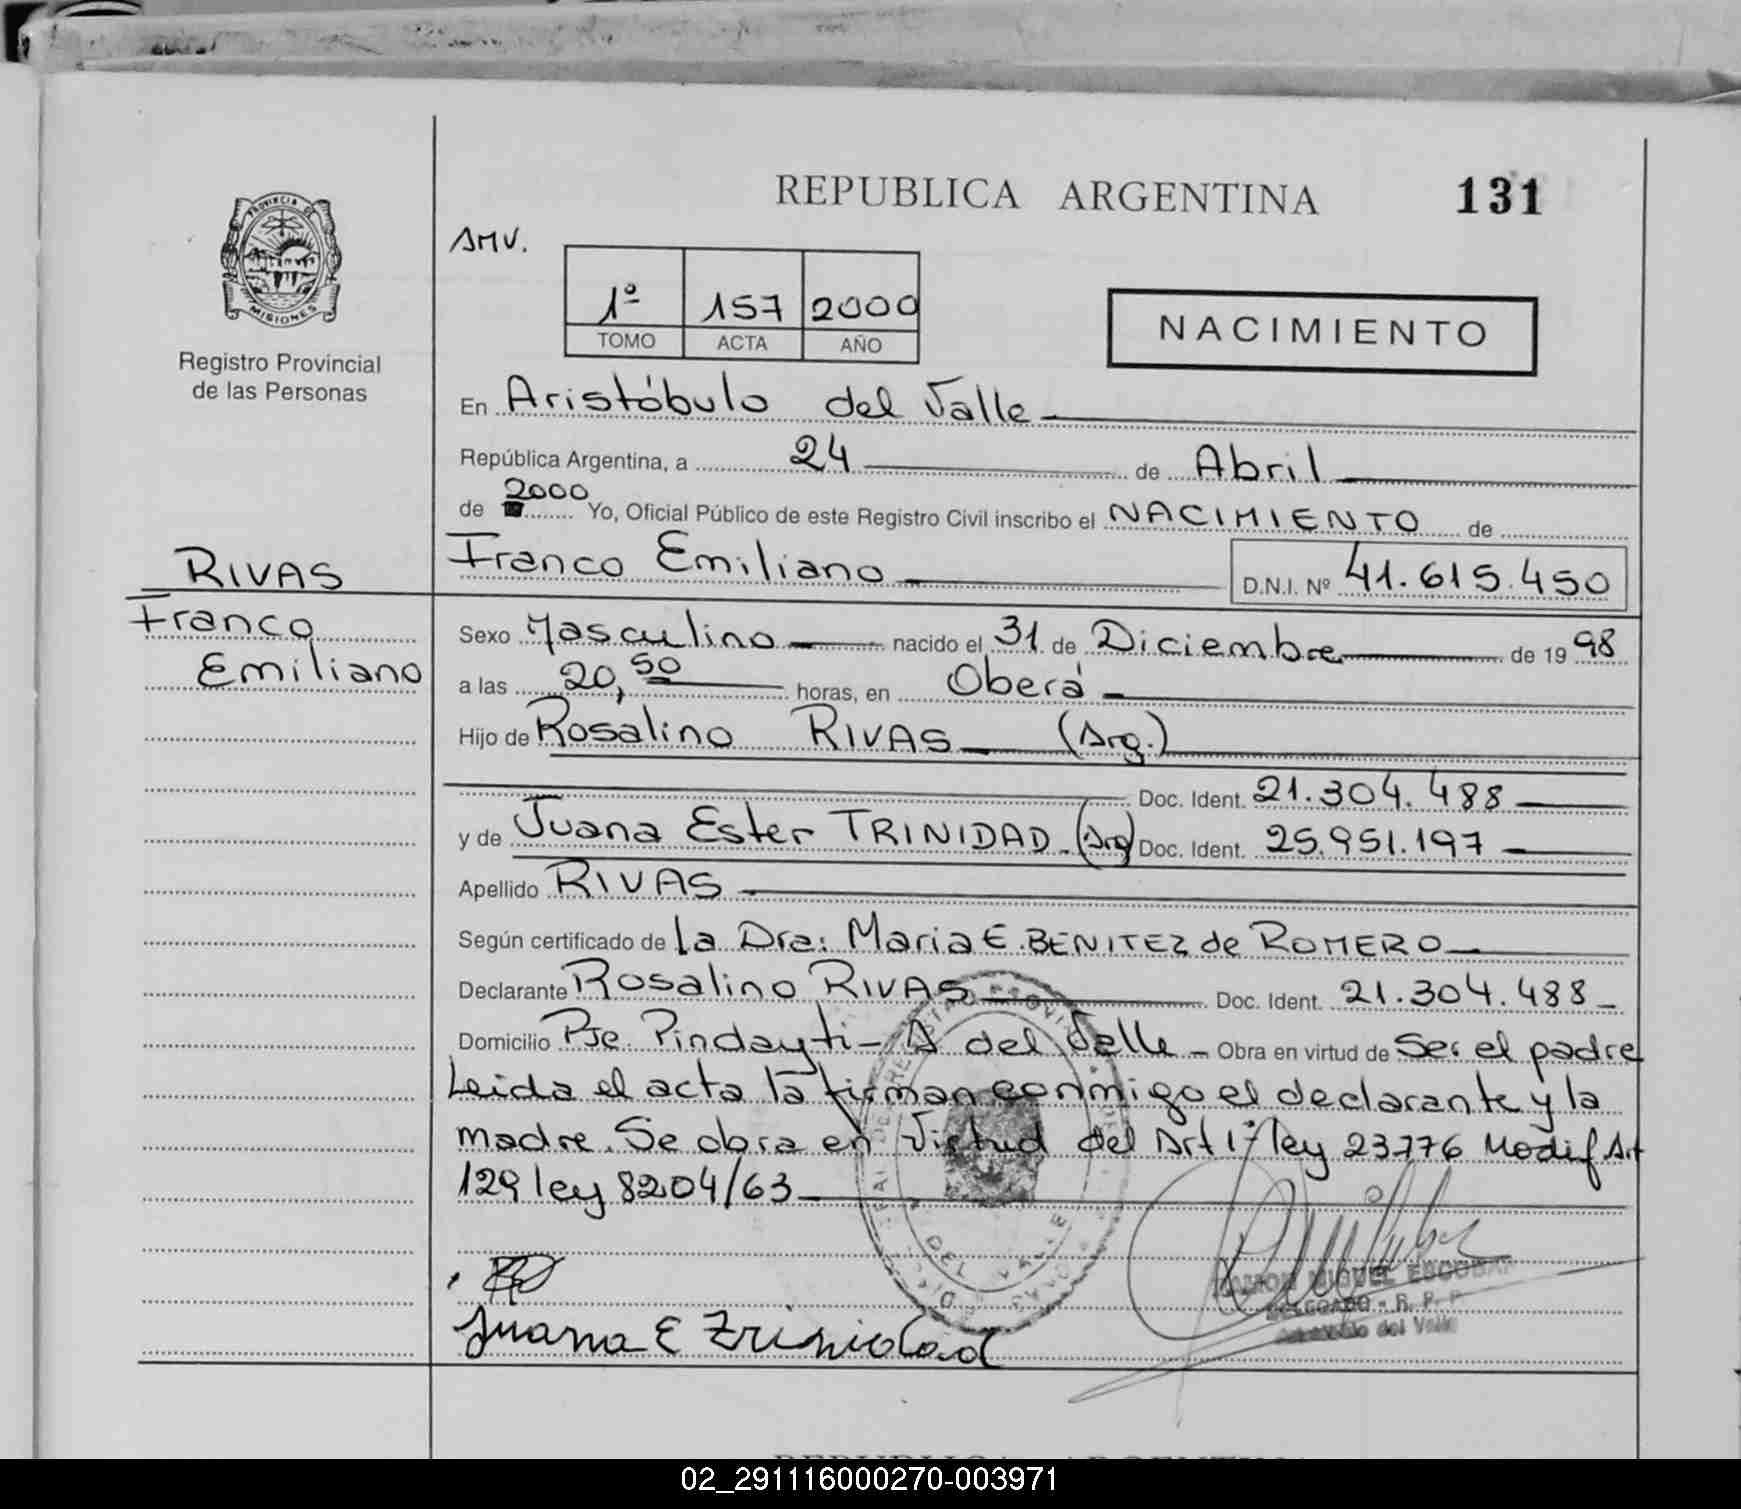 REPUBLICA ARGENTINA 131
PROVINCIA DE
MISIONES
Registro Provincial
de las Personas
AMV.
1º 157 2000
TOMO ACTA AÑO
NACIMIENTO
En Aristóbulo del Valle
República Argentina, a 24 de Abril
de 2000 Yo, Oficial Público de este Registro Civil inscribo el NACIMIENTO de
Franco Emiliano D.N.I. Nº 41.615.450
RIVAS
Franco
Emiliano
Sexo Masculino nacido el 31 de Diciembre de 19 98
a las 20,50 horas, en Oberá
Hijo de Rosalino RIVAS (Arg.)
Doc. Ident. 21.304.488
y de Juana Ester TRINIDAD (Arg) Doc. Ident. 25.951.197
Apellido RIVAS
Según certificado de la Dra: Maria E. BENITEZ de ROMERO
Declarante Rosalino RIVAS Doc. Ident. 21.304.488
Domicilio Pje Pindayti - A del Valle - Obra en virtud de Ser el padre
Leida el acta la firman conmigo el declarante y la
madre. Se obra en Virtud del Art 1º ley 23776 Modif Art
129 ley 8204/63
Juana E Trinidad
RAMON MIGUEL ESCOBAR
DELEGADO - R. P. P
del Valle
DEL VALLE
02_291116000270-003971